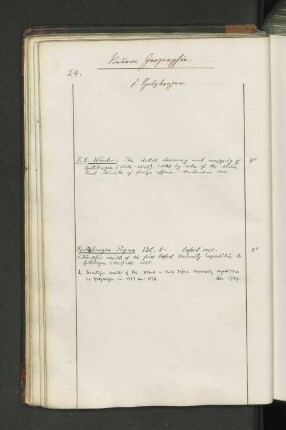 Neuere Geographie.
24.
Spitzbergen
F. C. Wieder: The dutch discovery and mapping of 4°
Spitzbergen (1596-1829). Edited by order of the
and minister of foreign affairs. Amsterdam
Spitzbergen Papers Vol. 1- Oxford 1925- 8°
1. Scientific results of the first Oxford University expedition to
Spitzbergen (1921)
2. Scientific results of the second and third Oxford University expeditions
to Spitzbergen in 1923 and 1924. 1929.